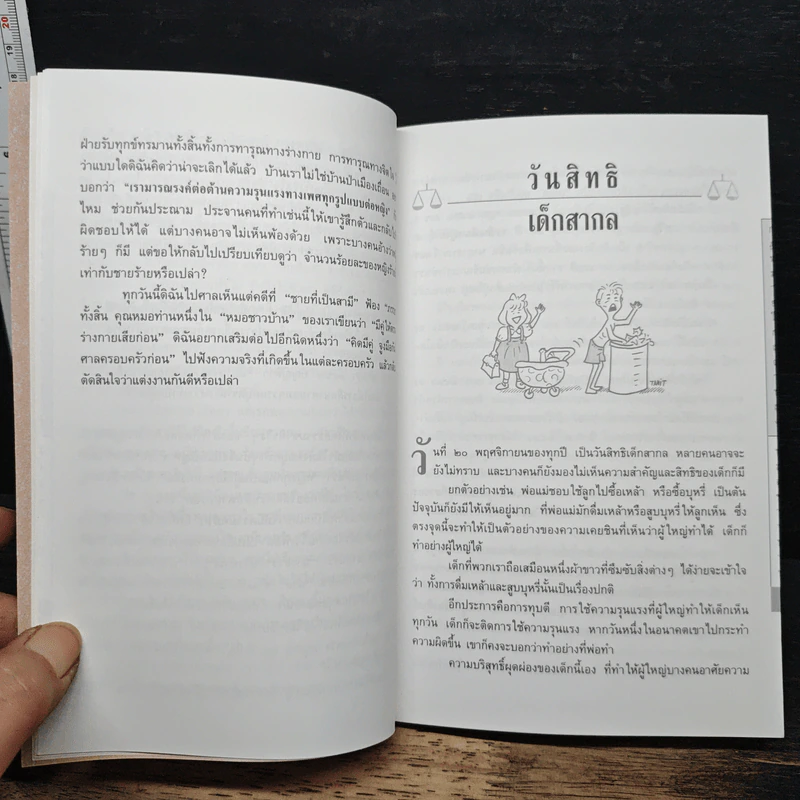 ฝ่ายรับทุกข์ทรมานทั้งสิ้นทั้งการทารุณทางร่างกาย การทารุณทางจิตใจ
ว่าแบบใดดิฉันคิดว่าน่าจะเลิกได้แล้ว บ้านเราไม่ใช่บ้านป่าเมืองเถื่อน
บอกว่า "เรามารณรงค์ต่อต้านความรุนแรงทางเพศทุกรูปแบบต่อหญิง"
ไหม ช่วยกันประณาม ประจานคนที่ทำเช่นนี้ให้เขารู้สึกตัวและกลับ
ผิดชอบให้ได้ แต่บางคนอาจไม่เห็นพ้องด้วย เพราะบางคนอ้างว่า
ร้ายๆ ก็มี แต่ขอให้กลับไปเปรียบเทียบดูว่า จำนวนร้อยละของหญิงร้าย
เท่ากับชายร้ายหรือเปล่า?
ทุกวันนี้ดิฉันไปศาลเห็นแต่คดีที่ "ชายที่เป็นสามี" ฟ้อง
ทั้งสิ้น คุณหมอท่านหนึ่งใน "หมอชาวบ้าน" ของเราเขียนว่า "มีคู่ให้
ร่างกายเสียก่อน" ดิฉันอยากเสริมต่อไปอีกนิดหนึ่งว่า "คิดมีคู่ จูงมือ
ศาลครอบครัวก่อน" ไปฟังความจริงที่เกิดขึ้นในแต่ละครอบครัว แล้ว
ตัดสินใจว่าแต่งงานกันดีหรือเปล่า
วันสิทธิ
เด็กสากล
วันที่ ๒๐ พฤศจิกายนของทุกปี เป็นวันสิทธิเด็กสากล หลายคนอาจจะ
ยังไม่ทราบ และบางคนก็ยังมองไม่เห็นความสำคัญและสิทธิของเด็กก็มี
ยกตัวอย่างเช่น พ่อแม่ชอบใช้ลูกไปซื้อเหล้า หรือซื้อบุหรี่ เป็นต้น
ปัจจุบันก็ยังมีให้เห็นอยู่มาก ที่พ่อแม่มักดื่มเหล้าหรือสูบบุหรี่ให้ลูกเห็น ซึ่ง
ตรงจุดนี้จะทำให้เป็นตัวอย่างของความเคยชินที่เห็นว่าผู้ใหญ่ทำได้ เด็กก็
ทำอย่างผู้ใหญ่ได้
เด็กที่พวกเราถือเสมือนหนึ่งผ้าขาวที่ซึมซับสิ่งต่างๆ ได้ง่ายจะเข้าใจ
ว่า ทั้งการดื่มเหล้าและสูบบุหรี่นั้นเป็นเรื่องปกติ
อีกประการคือการทุบตี การใช้ความรุนแรงที่ผู้ใหญ่ทำให้เด็กเห็น
ทุกวัน เด็กก็จะติดการใช้ความรุนแรง หากวันหนึ่งในอนาคตเขาไปกระทำ
ความผิดขึ้น เขาก็คงจะบอกว่าทำอย่างที่พ่อทำ
ความบริสุทธิ์ผุดผ่องของเด็กนี้เอง ที่ทำให้ผู้ใหญ่บางคนอาศัยความ
18
19
20